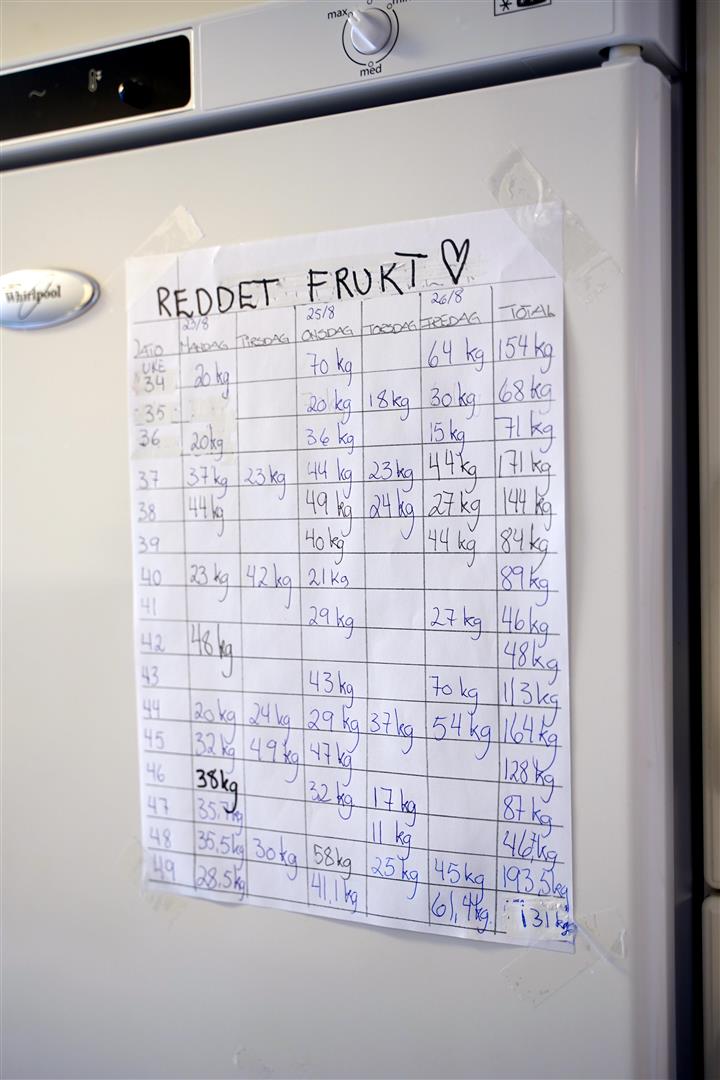 max
min
*
med
Whirlpool
REDDET FRUKT ♡
23/8 25/8 26/8
DATO MANDAG TIRSDAG ONSDAG TORSDAG FREDAG TOTAL
UKE
34 20 kg 70 kg 64 kg 154 kg
35 20 kg 18 kg 30 kg 68 kg
36 20 kg 36 kg 15 kg 71 kg
37 37 kg 23 kg 44 kg 23 kg 44 kg 171 kg
38 44 kg 49 kg 24 kg 27 kg 144 kg
39 40 kg 44 kg 84 kg
40 23 kg 42 kg 21 kg 89 kg
41 29 kg 27 kg 46 kg
42 48 kg 48 kg
43 43 kg 70 kg 113 kg
44 20 kg 24 kg 29 kg 37 kg 54 kg 164 kg
45 32 kg 49 kg 47 kg 128 kg
46 38 kg 32 kg 17 kg 87 kg
47 35,7 kg 11 kg 46,7 kg
48 35,5 kg 30 kg 58 kg 25 kg 45 kg 193,5 kg
49 28,5 kg 41,1 kg 61,4 kg 131 kg